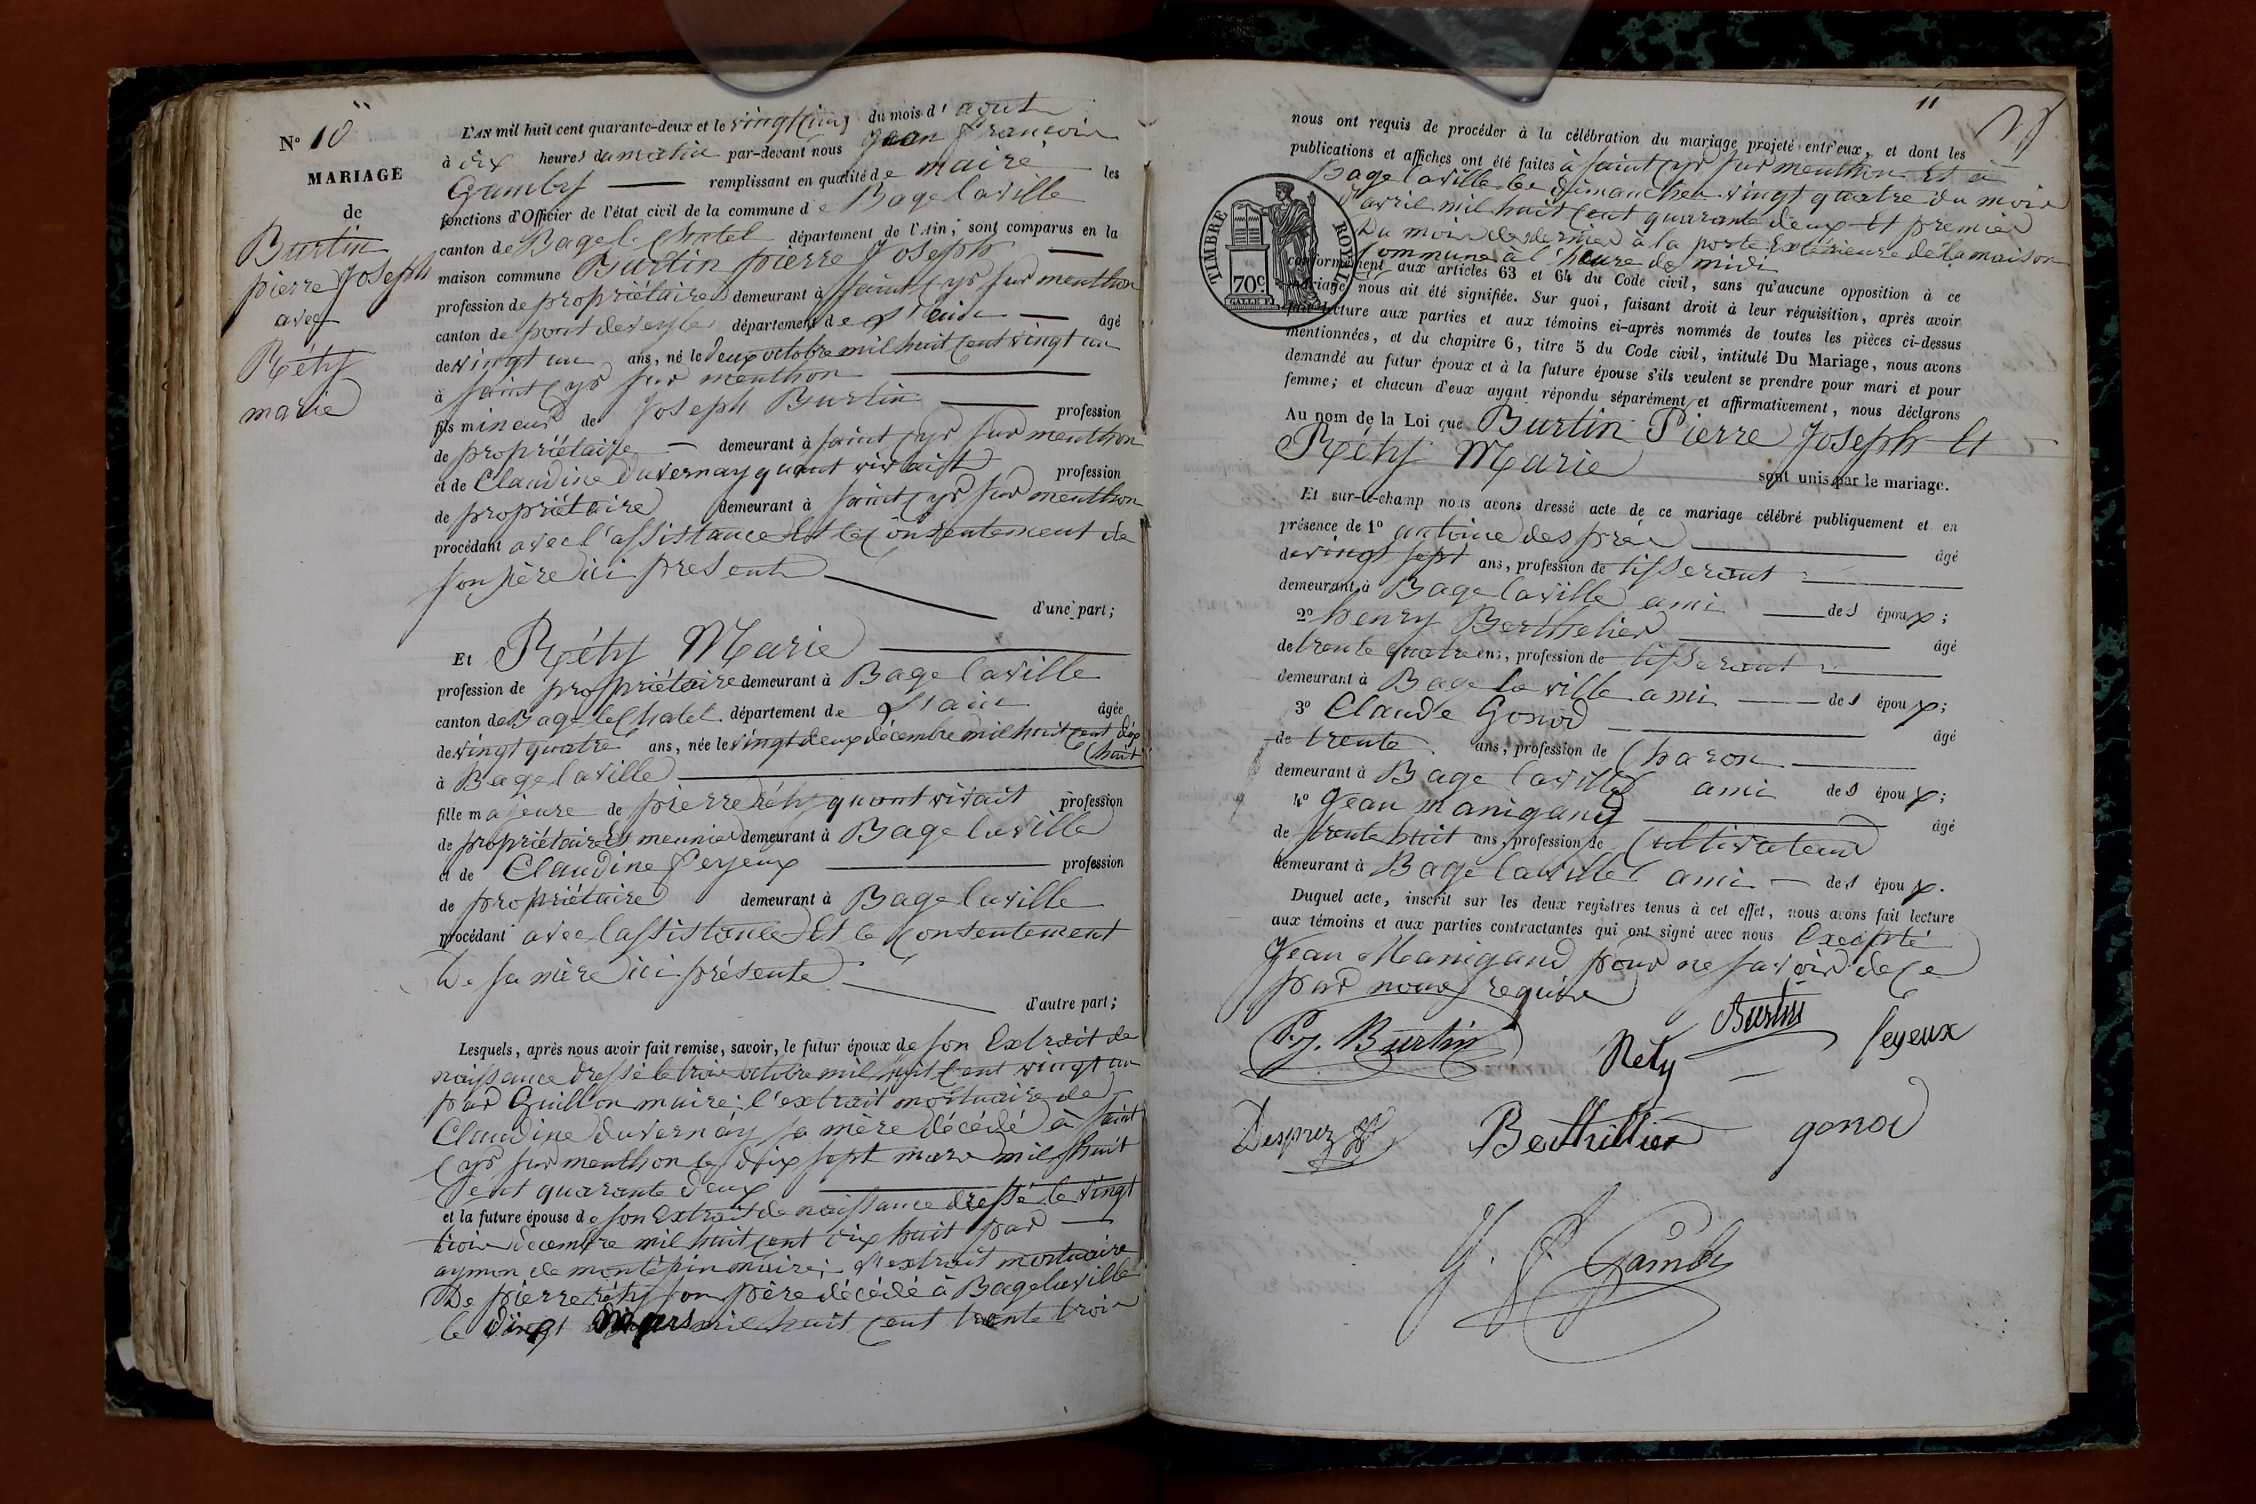 N° 10
MARIAGE
de
Burtin
pierre Joseph
avec
Réty
marie
L'AN mil huit cent quarante-deux et le vingt cinq du mois d'aout
à dix heures du matin par-devant nous Jean françois
Gamby remplissant en qualité de maire les
fonctions d'Officier de l'état civil de la commune de Bagé la ville
canton de Bagé le Chatel département de l'Ain; sont comparus en la
maison commune Burtin pierre Joseph
profession de propriétaire demeurant à Saint Cyr sur menthon
canton de pont de veyle département de L'ain âgé
de vingt un ans, né le deux octobre mil huit Cent vingt un
à Saint Cyr sur menthon
fils mineur de Joseph Burtin profession
de propriétaire demeurant à Saint Cyr sur menthon
et de Claudine Duvernay quant vivait profession
de propriétaire demeurant à Saint Cyr sur menthon
procédant avec l'assistance Et le Consentement de
son père ici présent
d'une part;
Et Réty Marie
profession de propriétaire demeurant à Bage la ville
canton de Bage le Chatel département de L'ain âgée
de vingt quatre ans, née le vingt deux décembre mil huit Cent dix
huit
à Bage la ville
fille majeure de pierre réty quant vivait profession
de propriétaire Et meunier demeurant à Bage la ville
et de Claudine feyeux profession
de propriétaire demeurant à Bage la ville
procédant avec l'assistance Et le Consentement
De sa mère ici présente
d'autre part;
Lesquels, après nous avoir fait remise, savoir, le futur époux de son Extrait de
naissance dressé le trois octobre mil huit Cent vingt un
par Guillon maire; l'extrait mortuaire de
Claudine duvernay sa mère décédé à Saint
Cyr sur menthon le dix sept mars mil huit
Cent quarante deux
et la future épouse de son Extrait de naissance dressé le vingt
trois décembre mil huit cent dix huit par
aymon de montépin maire; L'extrait mortuaire
De pierre réty son père décédé à Bage la ville
le vingt mars mil huit Cent trente trois
11
nous ont requis de procéder à la célébration du mariage projeté entr'eux, et dont les
publications et affiches ont été faites à Saint Cyr sur menthon Et à
Bage la ville les dimanches vingt quatre du mois
d'avril mil huit Cent quarante deux Et premier
Du mois de dernier à la porte Extérieure de la maison
Commune à l'heure de midi
conformément aux articles 63 et 64 du Code civil, sans qu'aucune opposition à ce
mariage nous ait été signifiée. Sur quoi, faisant droit à leur réquisition, après avoir
fait lecture aux parties et aux témoins ci-après nommés de toutes les pièces ci-dessus
mentionnées, et du chapitre 6, titre 5 du Code civil, intitulé Du Mariage, nous avons
demandé au futur époux et à la future épouse s'ils veulent se prendre pour mari et pour
femme; et chacun d'eux ayant répondu séparément et affirmativement, nous déclarons
TIMBRE ROYAL
70c
Au nom de la Loi que Burtin Pierre Joseph Et
Réty Marie
sont unis par le mariage.
Et sur-le-champ nous avons dressé acte de ce mariage célébré publiquement et en
présence de 1° antoine després âgé
de vingt sept ans, profession de tisserant
demeurant à Bage la ville ami des époux;
2° henry Berthelier âgé
de trente quatre ans, profession de tisserant
demeurant à Bage la ville ami des époux;
3° Claude Gonod âgé
de trente ans, profession de Charon
demeurant à Bage la ville ami des époux;
4° Jean manigand âgé
de trente huit ans, profession de Cultivateur
demeurant à Bage la ville ami des époux.
Duquel acte, inscrit sur les deux registres tenus à cet effet, nous avons fait lecture
aux témoins et aux parties contractantes qui ont signé avec nous Excepté
Jean Manigand pour ne savoir de Ce
par nous requis
P. J. Burtin
Réty
Burtin
feyeux
Desprez
Berthillier
gonod
J. F. Gamby